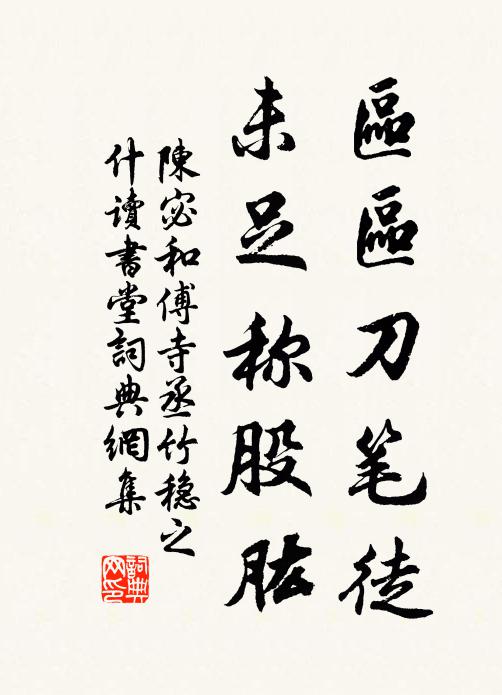 區區刀笔徒
未足称股肱
陳宓和傅寺丞竹穏之
什讀書堂詞典網集
詞典网印